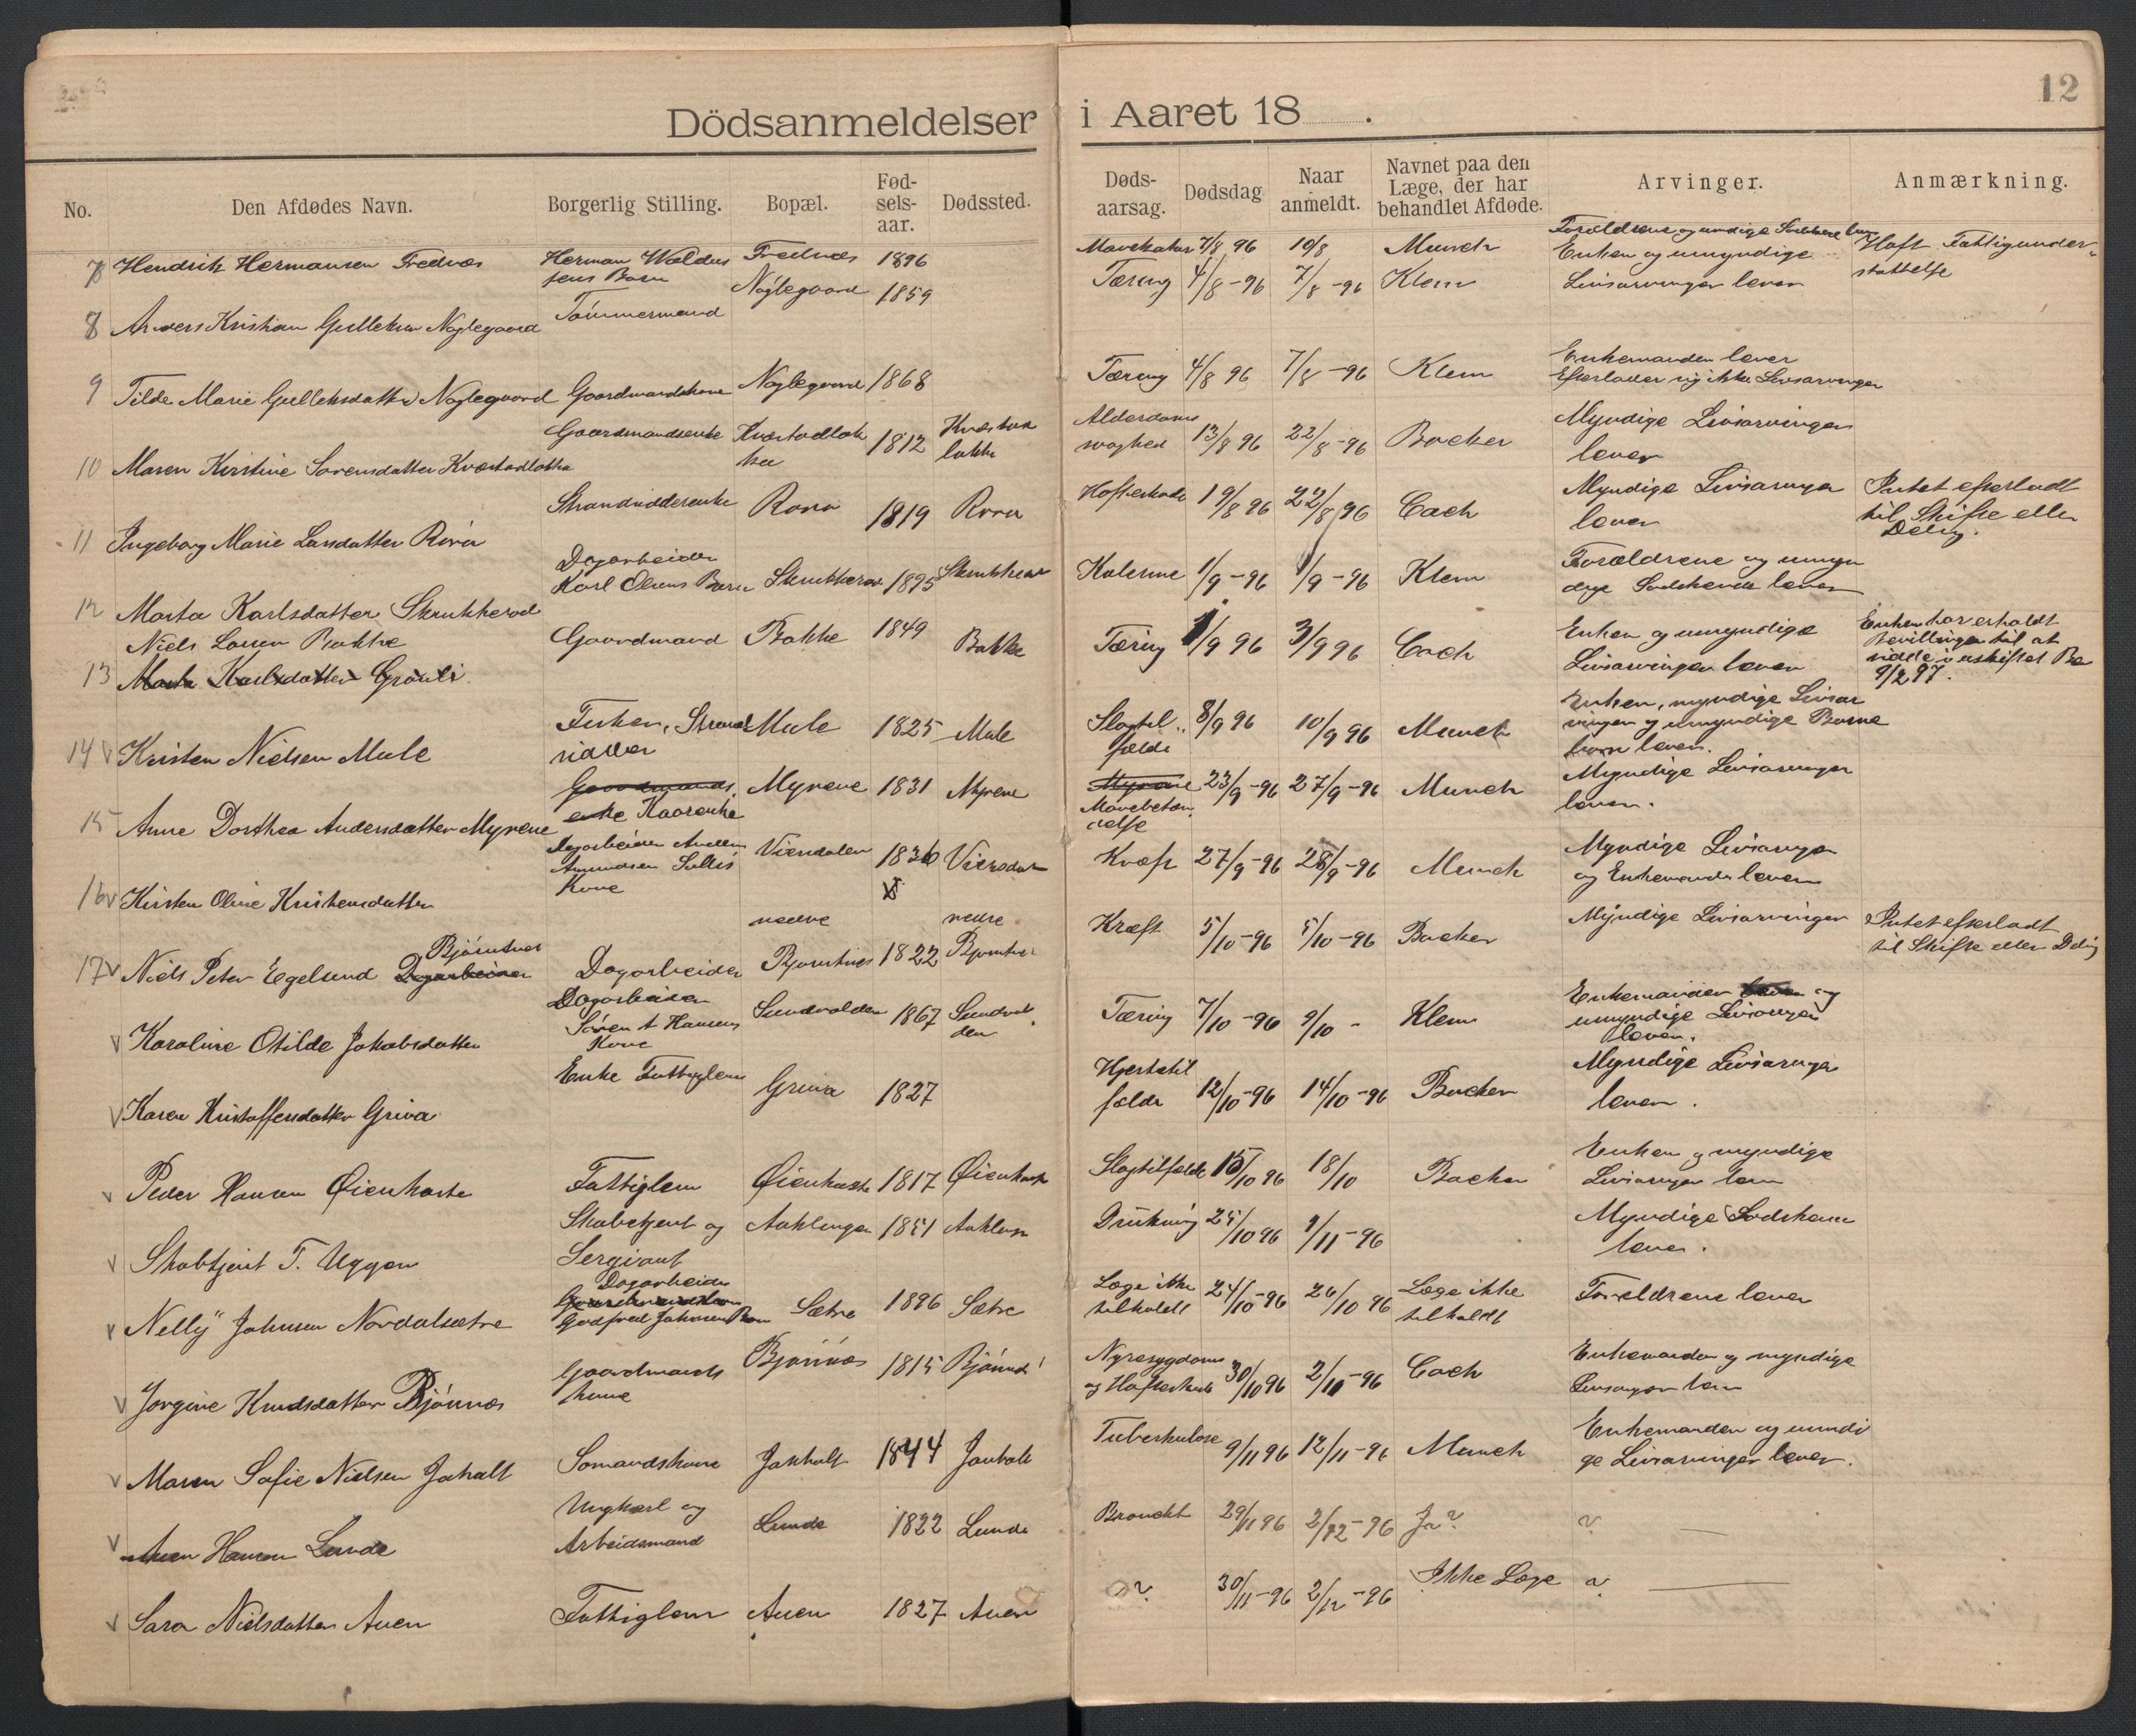 12
Dödsanmeldelser i Aaret 18 .
No. Den Afdødes Navn. Borgerlig Stilling. Bopæl. Fød-sels-aar. Dødssted. Døds-aarsag. Dødsdag. Naar anmeldt. Navnet paa den Læge, der har behandlet Afdøde. Arvinger. Anmærkning.
7 Hendrik Hermansen Frednæs Herman Frednæs 1896 7/8 96 10/8 Munch Forældrene og Haft Fattigunder-støttelse
8 Anders Kristian Gulleksen Nøglegaard Tømmermand Nøglegaard 1859 Tæring 4/8 -96 7/8 -96 Klem Enken og umyndige Livsarvinger lever
9 Tilde Marie Gulleksdatter Nøglegaard Gaardmandskone Nøglegaard 1868 Tæring 4/8 96 7/8 -96 Klem Enkemanden lever Efterlader sig ikke Livsarvinger
10 Maren Kirstine Sørensdatter Kværstadløkka Gaardmandsenke 1812 Alderdoms svaghed 13/8 96 22/8 -96 Backer Myndige Livsarvinger lever
11 Ingeborg Marie Larsdatter Røra Strandsidderenke Røra 1819 Røra 19/8 96 22/8 96 Coch Myndige Livsarvinger lever Intet efterladt til Skifte eller Deling.
12 Marta Karlsdatter Skrukkerød Dagarbeider Karl Olsens Barn Skrukkerød 1895 Kolerine 1/9 -96 1/9 -96 Klem Forældrene og umyndige Sødskende lever
13 Niels Larsen Bakke Marta Karlsdatter Gaardmand Bakke 1849 Bakke Tæring 1/9 96 3/9 96 Coch Enken og umyndige Livsarvinger lever Enken har erholdt Bevillingen til at sidde i uskiftet Bo 9/2 97.
14 Kristen Nielsen Mule Fisker, Strandsidder Mule 1825 Mule Slagtilfælde 8/9 96 10/9 96 Munch Enken, myndige Livsarvinger og umyndige Børnebørn lever.
15 Anne Dorthea Andersdatter Myrene Gaardmandsenke Myrene 1831 Myrene Myrene Mavebetændelse 23/9 -96 27/9 -96 Munch Myndige Livsarvinger lever.
16 Kirsten Oline Kristensdatter Dagarbeider Anders Amundsen Kone Viersdalen nedre 1836 Viersdal nedre Kræft 27/9 -96 28/9 -96 Munch Myndige Livsarvinger og Enkemanden lever
17 Niels Peter Egelund Dagarbeider Bjørntvet Dagarbeider Bjørntvet 1822 Bjørntvet Kræft 5/10 -96 5/10 -96 Backer Myndige Livsarvinger Intet efterladt til Skifte eller Deling
Karoline Otilde Jakobsdatter Dagarbeider Søren A Hansens Kone Sundvolden 1867 Tæring 7/10 -96 9/10 - Klem Enkemanden lever og umyndige Livsarvinger lever.
Karen Kristoffersdatter Griva Enke Fattiglem Griva 1827 Hjertetilfælde 12/10 -96 14/10 -96 Backer Myndige Livsarvinger lever.
Peder Hansen Øienkaste Fattiglem Øienkaste 1817 Øienkast Slagtilfælde 15/10 96 18/10 Backer Enken og myndige Livsarvinger lever
Skabtjent T. Uggen Skabetjent og Sergiant 1851 Drukning 25/10 96 9/11 -96 Myndige Sødskende lever.
Nelly Johnsen Nordalsætre Dagarbeider Godfred Johnsens Barn Sætre 1896 Sætre Læge ikke tilkaldt 24/10 -96 26/10 96 Læge ikke tilkaldt Forældrene lever
Jørgine Knudsdatter Bjønnæs Gaardmands kone Bjønnæs 1815 Bjønnæs Nyresygdom og 30/10 96 2/11 -96 Coch Enkemanden og myndige Livsarvinger lever
Maren Sofie Nielsen Jøkolt Sømandskone 1844 Tuberkulose 9/11 96 12/11 -96 Munch Enkemanden og umyndige Livsarvinger lever.
Hansen Lunde Ungkarl og Arbeidsmand Lunde 1822 Lunde 29/11 96 2/12 -96 Ja? ? —
Sara Nielsdatter Auen Fattiglem Auen 1827 Auen ? 30/11 -96 2/12 -96 Ikke Læge ? —